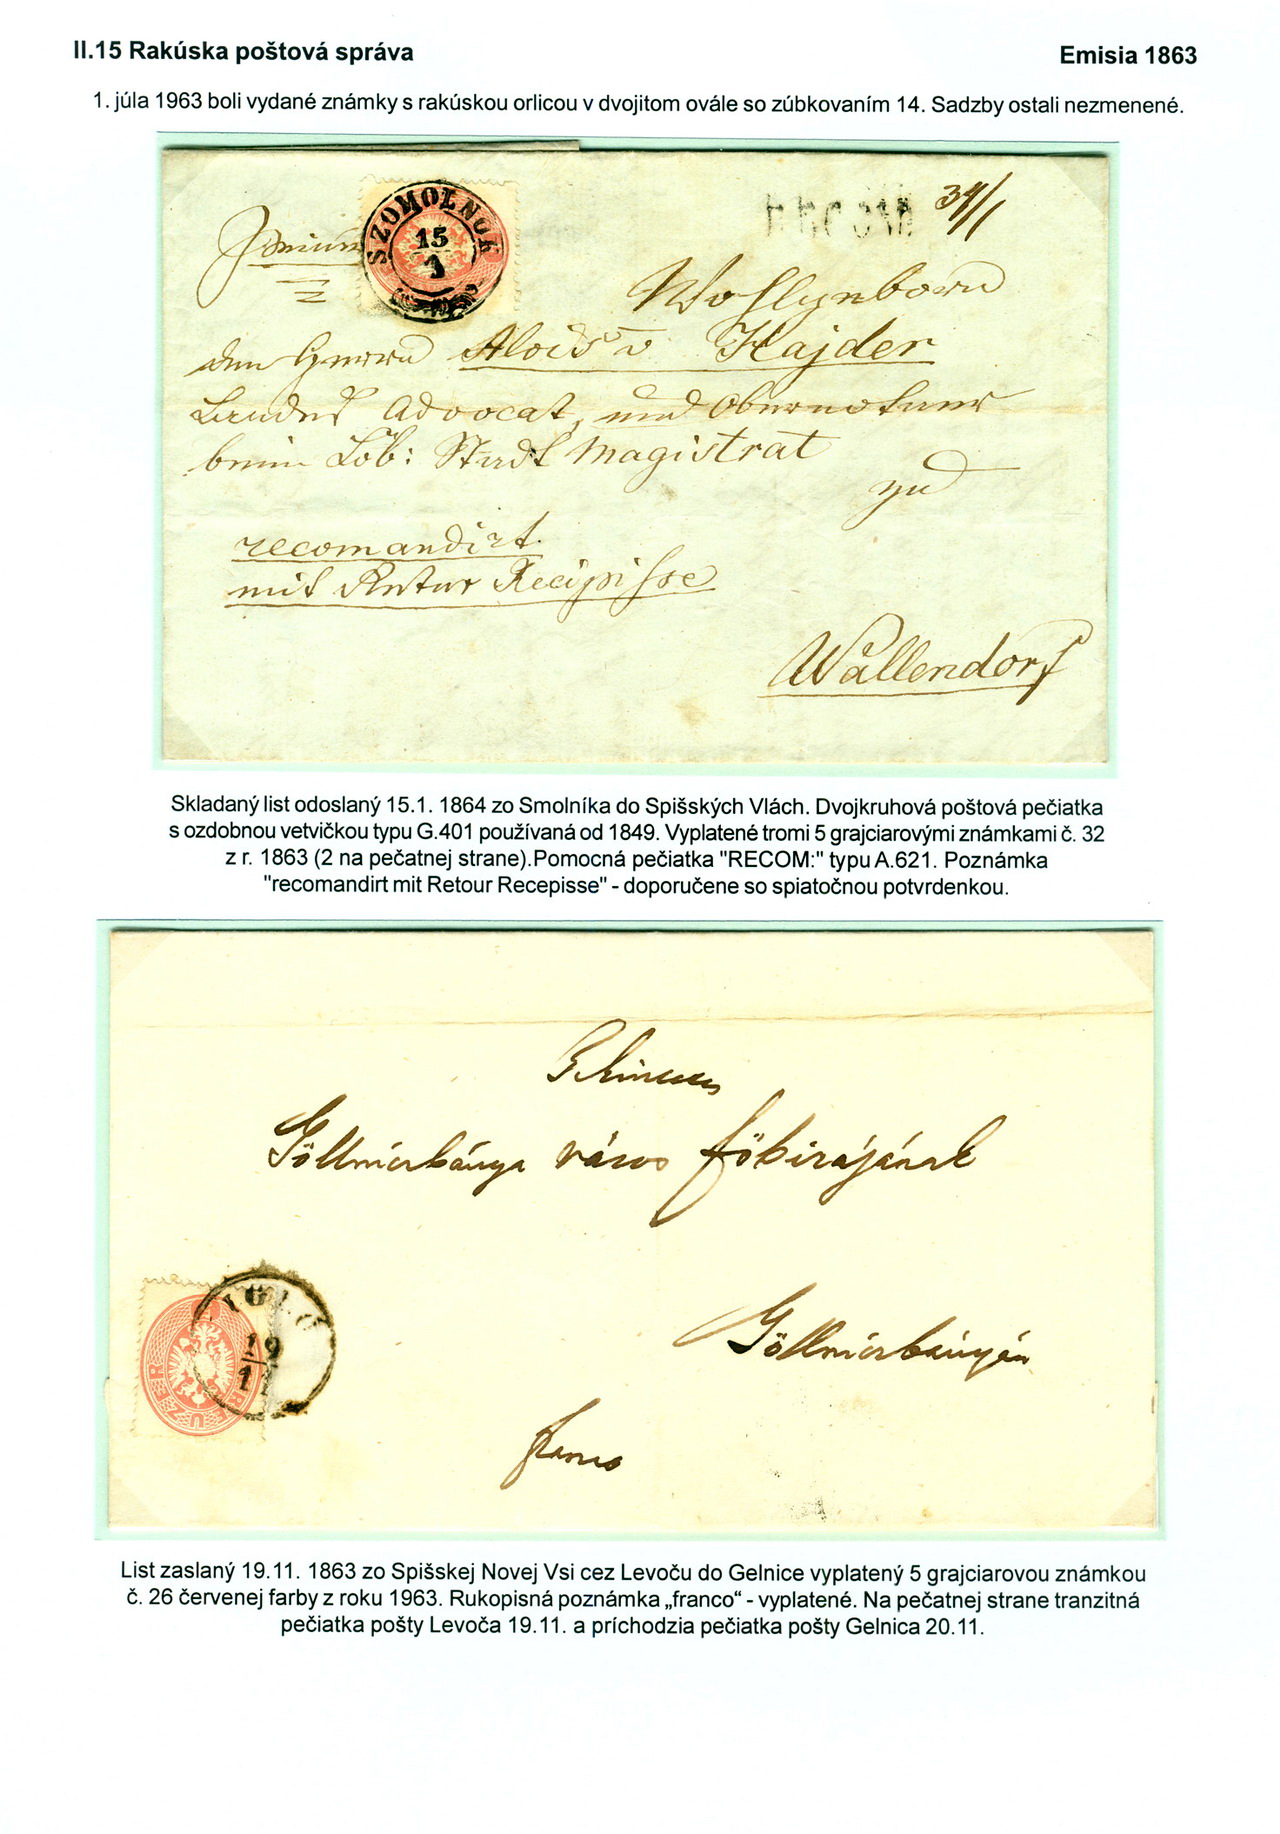 II.15 Rakúska poštová správa
Emisia 1863
1. júla 1963 boli vydané známky s rakúskou orlicou v dvojitom ovále so zúbkovaním 14. Sadzby ostali nezmenené.
SZOMOLNOK
15
1
34/1
Wohlgeborn
den Herrn Alois v Hajder
Landes Advocat, und Obernotaer
beim Löb: Stadt Magistrat
zu
recomandirt.
mit Retur Recipisse
Wallendorf
Skladaný list odoslaný 15.1. 1864 zo Smolníka do Spišských Vlách. Dvojkruhová poštová pečiatka
s ozdobnou vetvičkou typu G.401 používaná od 1849. Vyplatené tromi 5 grajciarovými známkami č. 32
z r. 1863 (2 na pečatnej strane).Pomocná pečiatka "RECOM:" typu A.621. Poznámka
"recomandirt mit Retour Recepisse" - doporučene so spiatočnou potvrdenkou.
Göllniczbánya város főbirájának
IGLÓ
19
11
KREUZER
Göllniczbányán
franco
List zaslaný 19.11. 1863 zo Spišskej Novej Vsi cez Levoču do Gelnice vyplatený 5 grajciarovou známkou
č. 26 červenej farby z roku 1963. Rukopisná poznámka „franco“ - vyplatené. Na pečatnej strane tranzitná
pečiatka pošty Levoča 19.11. a príchodzia pečiatka pošty Gelnica 20.11.